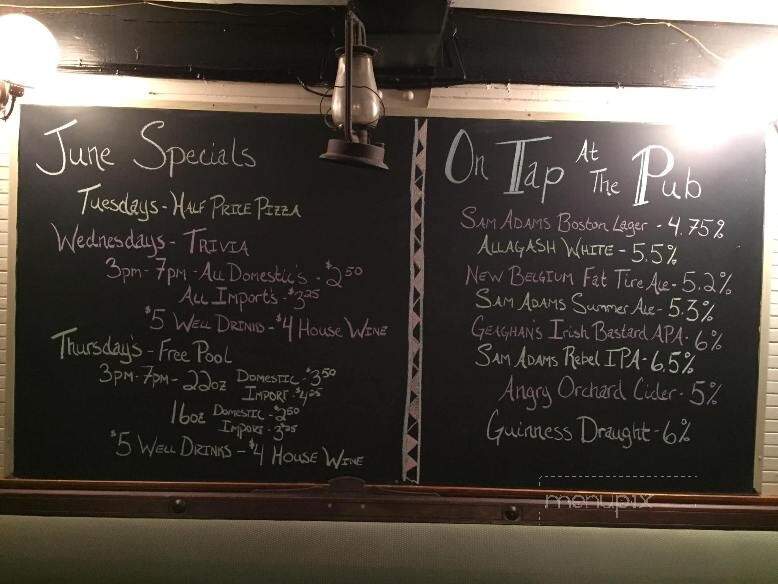 June Specials
Tuesdays - Half Price Pizza
Wednesdays - Trivia
3pm - 7pm - All Domestic's - $2.50
All Import's - $3.25
$5 Well Drinks - $4 House Wine
Thursday's - Free Pool
3pm - 7pm - 22oz Domestic - $3.50
Import - $4.25
16oz Domestic - $2.50
Import - $3.25
$5 Well Drinks - $4 House Wine
On Tap At The Pub
Sam Adams Boston Lager - 4.75%
Allagash White - 5.5%
New Belgium Fat Tire Ale - 5.2%
Sam Adams Summer Ale - 5.3%
Geaghans Irish Bastard APA - 6%
Sam Adams Rebel IPA - 6.5%
Angry Orchard Cider - 5%
Guinness Draught - 6%
menupix